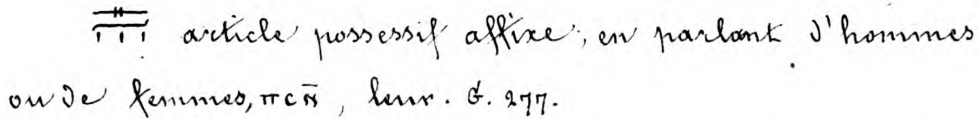 𓊃𓈖𓏥 article possessif affixe, en parlant d'hommes
ou de femmes, ⲡⲥⲛ̄, leur. G. 277.